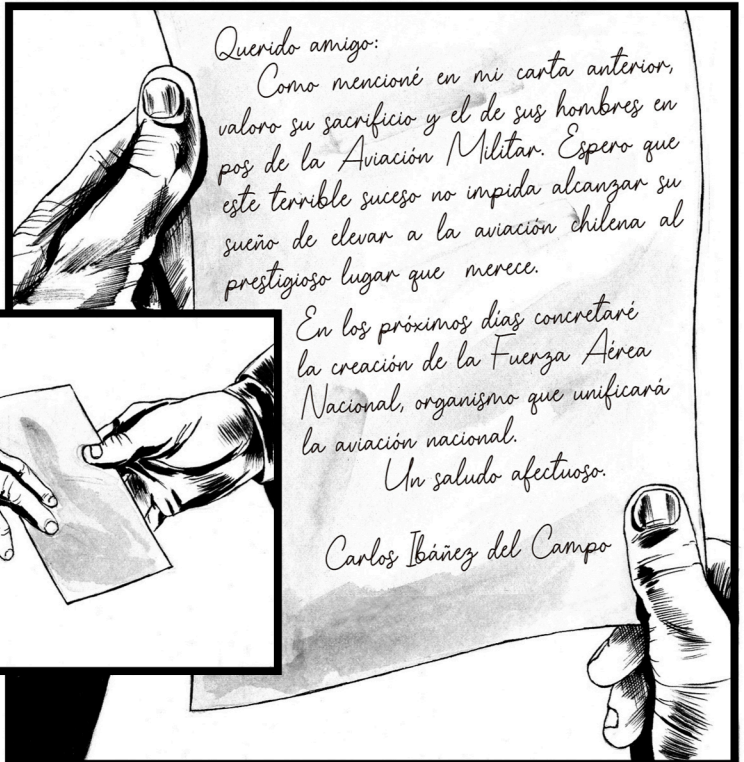 Querido amigo:
Como mencioné en mi carta anterior,
valoro su sacrificio y el de sus hombres en
pos de la Aviación Militar. Espero que
este terrible suceso no impida alcanzar su
sueño de elevar a la aviación chilena al
prestigioso lugar que merece.
En los próximos días concretaré
la creación de la Fuerza Aérea
Nacional, organismo que unificará
la aviación nacional.
Un saludo afectuoso.
Carlos Ibáñez del Campo